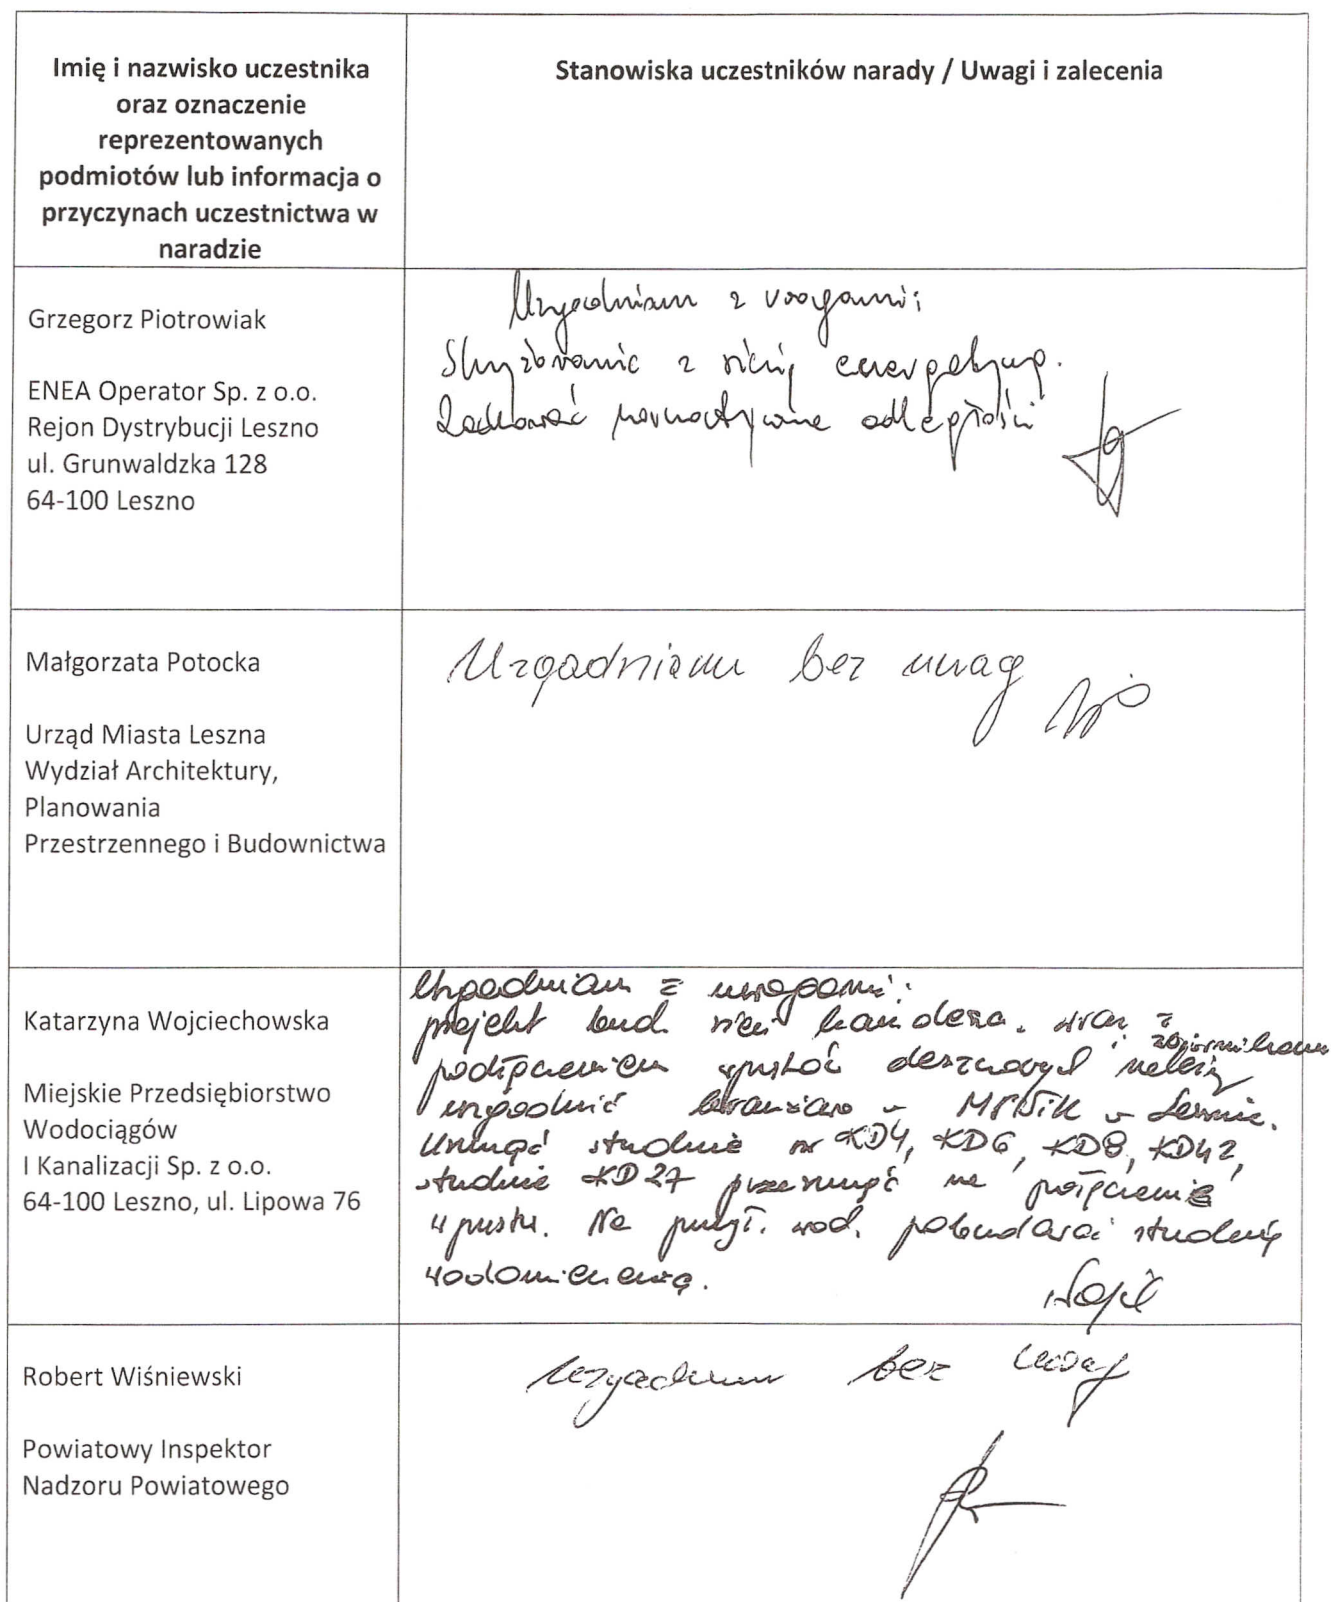 Imię i nazwisko uczestnika
oraz oznaczenie
reprezentowanych
podmiotów lub informacja o
przyczynach uczestnictwa w
naradzie
Stanowiska uczestników narady / Uwagi i zalecenia
Grzegorz Piotrowiak
ENEA Operator Sp. z o.o.
Rejon Dystrybucji Leszno
ul. Grunwaldzka 128
64-100 Leszno
Uzgadniam z uwagami:
Skrzyżowanie z siecią energetyczną.
Zachować normatywne odległości
Małgorzata Potocka
Urząd Miasta Leszna
Wydział Architektury,
Planowania
Przestrzennego i Budownictwa
Uzgadniam bez uwag
Katarzyna Wojciechowska
Miejskie Przedsiębiorstwo
Wodociągów
I Kanalizacji Sp. z o.o.
64-100 Leszno, ul. Lipowa 76
Uzgadniam z uwagami:
projekt bud. sieci kan. deszcz. wraz z
podłączeniem wpustów deszczowych i zbiornikami należy
uzgodnić branżowo w MPWiK w Lesznie.
Usunąć studnie nr KD4, KD6, KD8, KD42,
studnie KD27 przesunąć na połączenie
wpustu. Na przył. wod. pobudować studnię
wodomierzową.
Robert Wiśniewski
Powiatowy Inspektor
Nadzoru Powiatowego
Uzgadniam bez uwag